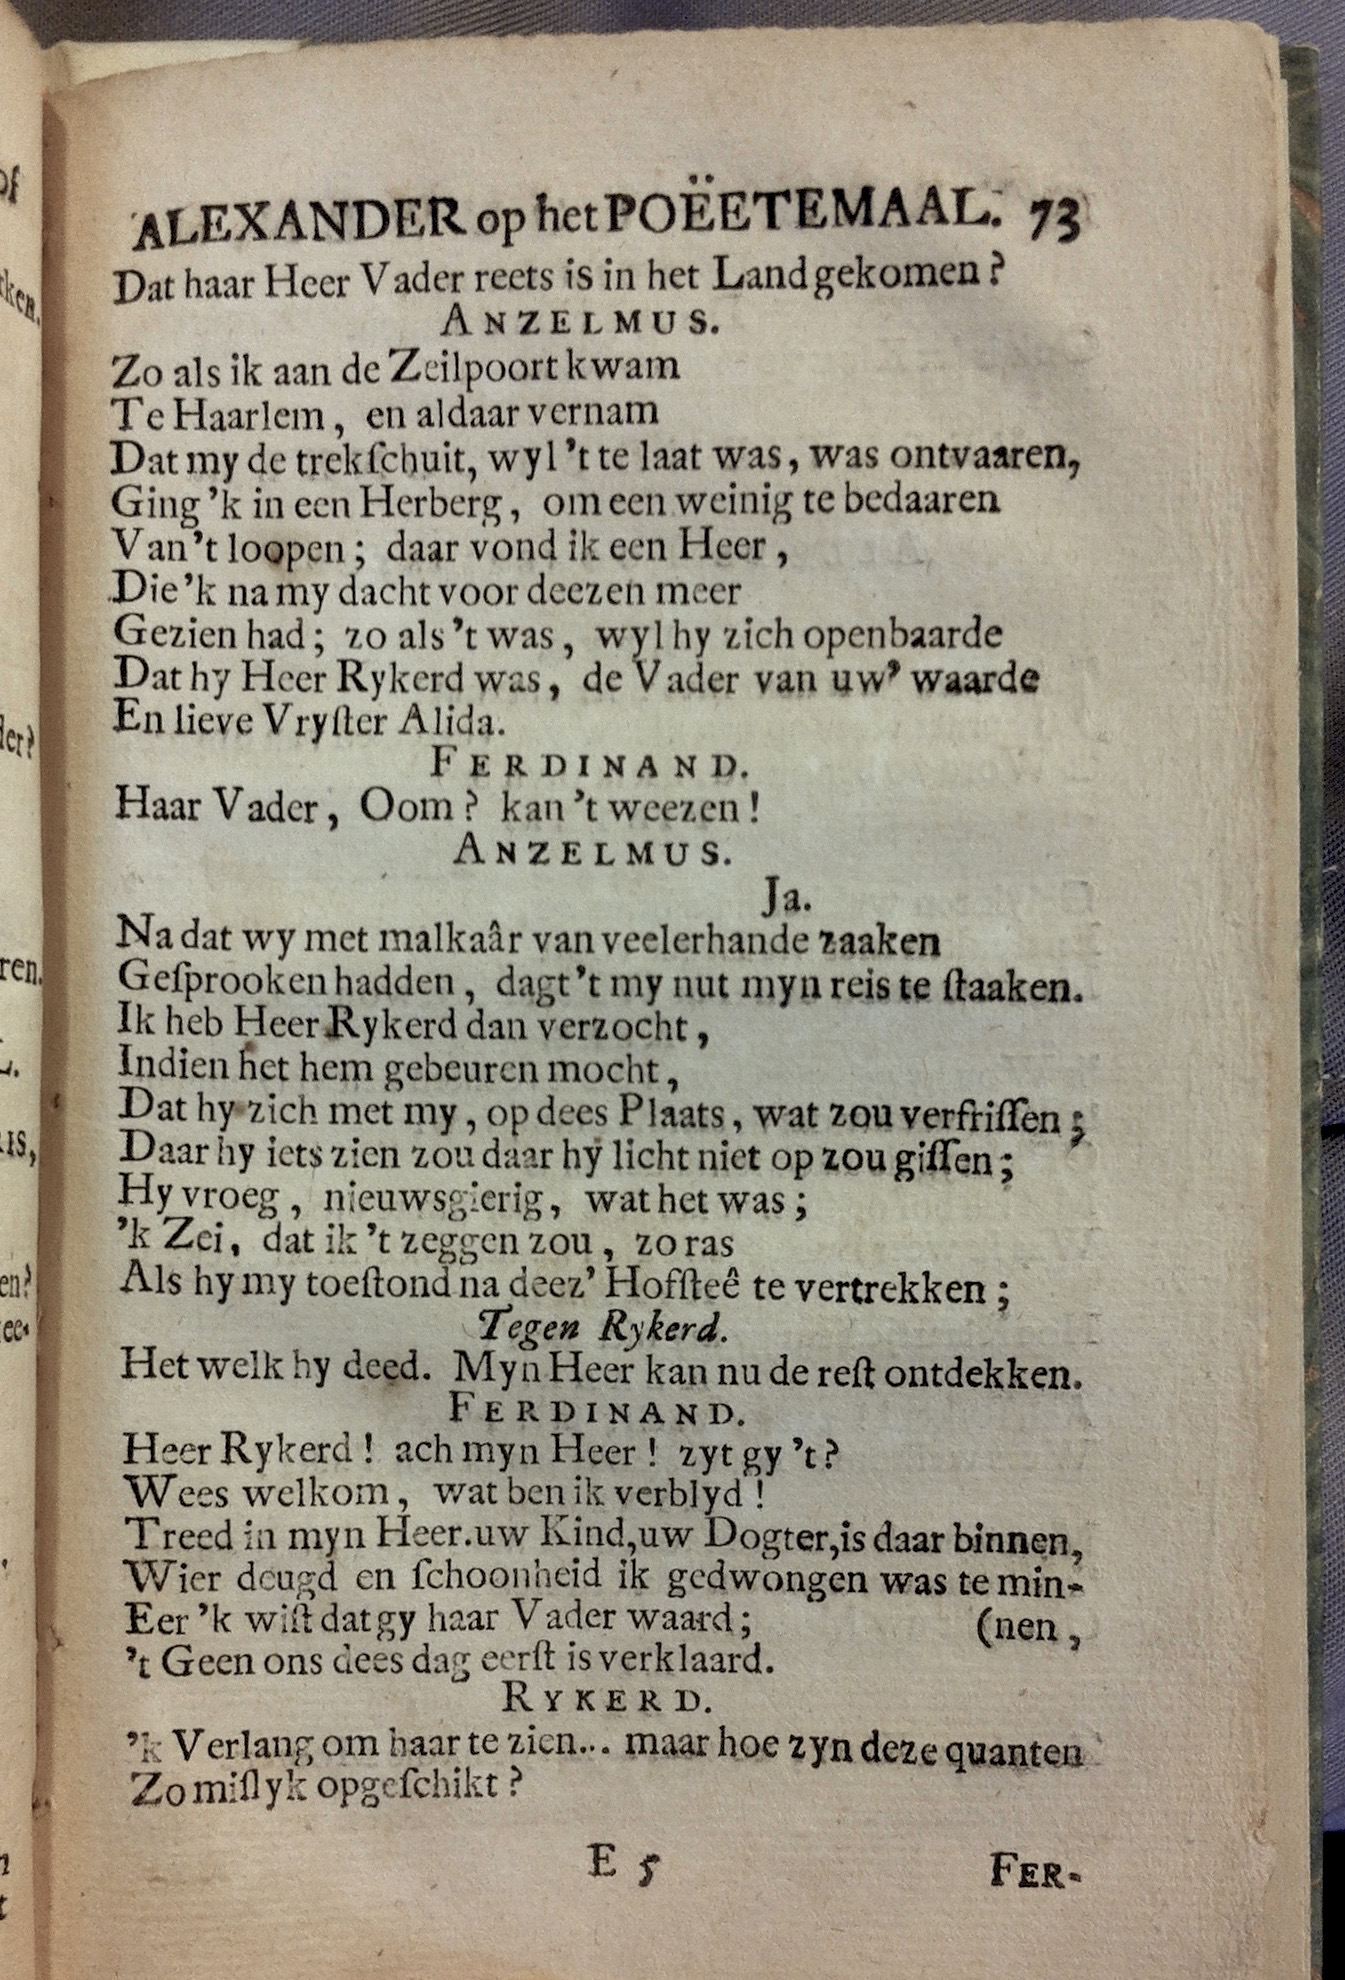 ALEXANDER op het POËETEMAAL. 73
Dat haar Heer Vader reets is in het Land gekomen?
ANZELMUS.
Zo als ik aan de Zeilpoort kwam
Te Haarlem, en aldaar vernam
Dat my de trekſchuit, wyl 't te laat was, was ontvaaren,
Ging 'k in een Herberg, om een weinig te bedaaren
Van 't loopen; daar vond ik een Heer,
Die 'k na my dacht voor deezen meer
Gezien had; zo als 't was, wyl hy zich openbaarde
Dat hy Heer Rykerd was, de Vader van uw' waarde
En lieve Vryſter Alida.
FERDINAND.
Haar Vader, Oom? kan 't weezen!
ANZELMUS.
Ja.
Na dat wy met malkaâr van veelerhande zaaken
Geſprooken hadden, dagt 't my nut myn reis te ſtaaken.
Ik heb Heer Rykerd dan verzocht,
Indien het hem gebeuren mocht,
Dat hy zich met my, op dees Plaats, wat zou verfriſſen;
Daar hy iets zien zou daar hy licht niet op zou giſſen;
Hy vroeg, nieuwsgierig, wat het was;
'k Zei, dat ik 't zeggen zou, zo ras
Als hy my toeſtond na deez' Hofſteê te vertrekken;
Tegen Rykerd.
Het welk hy deed. Myn Heer kan nu de reſt ontdekken.
FERDINAND.
Heer Rykerd! ach myn Heer! zyt gy 't?
Wees welkom, wat ben ik verblyd!
Treed in myn Heer. uw Kind, uw Dogter, is daar binnen,
Wier deugd en ſchoonheid ik gedwongen was te min-
Eer 'k wiſt dat gy haar Vader waard; (nen,
't Geen ons dees dag eerſt is verklaard.
RYKERD.
'k Verlang om haar te zien... maar hoe zyn deze quanten
Zo miſlyk opgeſchikt?
E 5 FER-
of
rken.
der?
ren.
L.
is,
en?
ee-
n
t